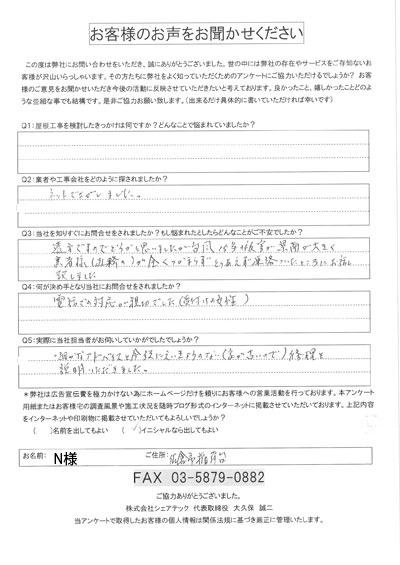 お客様のお声をお聞かせください
この度は弊社にお問い合わせをいただき、誠にありがとうございました。世の中には弊社の存在やサービスをご存知ないお
客様が沢山いらっしゃいます。その方たちに弊社をよく知っていただくためのアンケートにご協力いただけるでしょうか？ お客
様のご意見をお聞かせいただき今後の活動に反映させていただきたいと考えております。良かったこと、嬉しかったことどのよ
うな些細な事でも結構です。是非ご協力お願い致します。（出来るだけ具体的に書いていただければ幸いです）
Q1:屋根工事を検討したきっかけは何ですか？どんなことで悩まれていましたか？
Q2:業者や工事会社をどのように探されましたか？
ネットでさがしました。
Q3:当社を知りすぐにお問合せをされましたか？もし悩まれたとしたらどんなことがご不安でしたか？
遠方ですのでどうかと思いましたが台風15号被害が県南が大きく
業者様(近隣の)が全くつかまらずとりあえず連絡ついたところにお話し
致しました
Q4:何が決め手となり当社にお問合せをされましたか？
電話での対応が親切でした(受付けの女性)
Q5:実際に当社担当者がお伺いしていかがでしたでしょうか？
細かなアドバイスと
説明いただきました。
＊弊社は広告宣伝費を極力かけない為にホームページだけを頼りにお客様への営業活動を行っております。本アンケート
用紙またはお客様宅の調査風景や施工状況を随時ブログ形式のインターネットに掲載させていただいております。上記内容
をインターネットや印刷物に掲載させていただいてもよろしいでしょうか？
（　）名前を出してもよい　（✓）イニシャルなら出してもよい
お名前: N様 ご住所: 佐倉市
FAX 03-5879-0882
ご協力ありがとうございました。
株式会社シェアテック 代表取締役 大久保 誠二
当アンケートで取得したお客様の個人情報は関係法規に基づき厳正に管理いたします。